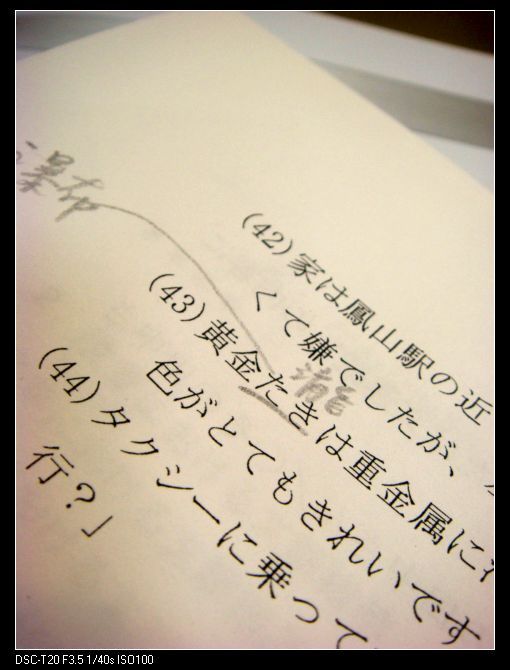 瀑布
(42) 家は鳳山駅の近
くて嫌でしたが、
瀧
(43) 黄金たきは重金属に
色がとてもきれいです
(44) タクシーに乗って
行?」
DSC-T20 F3.5 1/40s ISO100